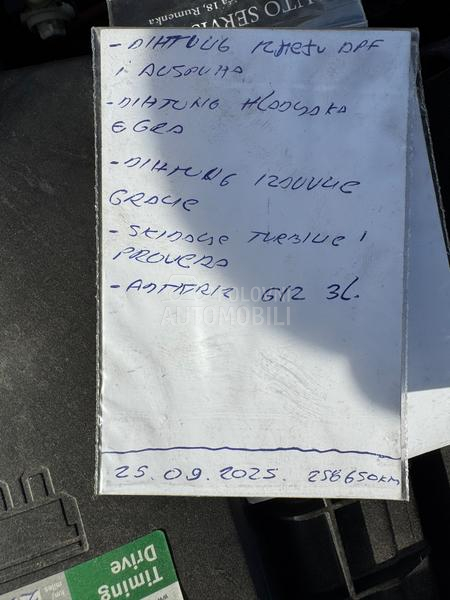 AUTO SERVIS
18, Rumenka
- DIHTUNG IZMEĐU DPF
I AUSPUHA
- DIHTUNG HLADNJAKA
EGRA
- DIHTUNG IZDUVNE
GRANE
- SKIDANJE TURBINE I
PROVERA
- ANTIFRIZ G12 3L.
POLOVNI
AUTOMOBILI
25.09.2025. 258650KM
Timing
Drive
km/
miles